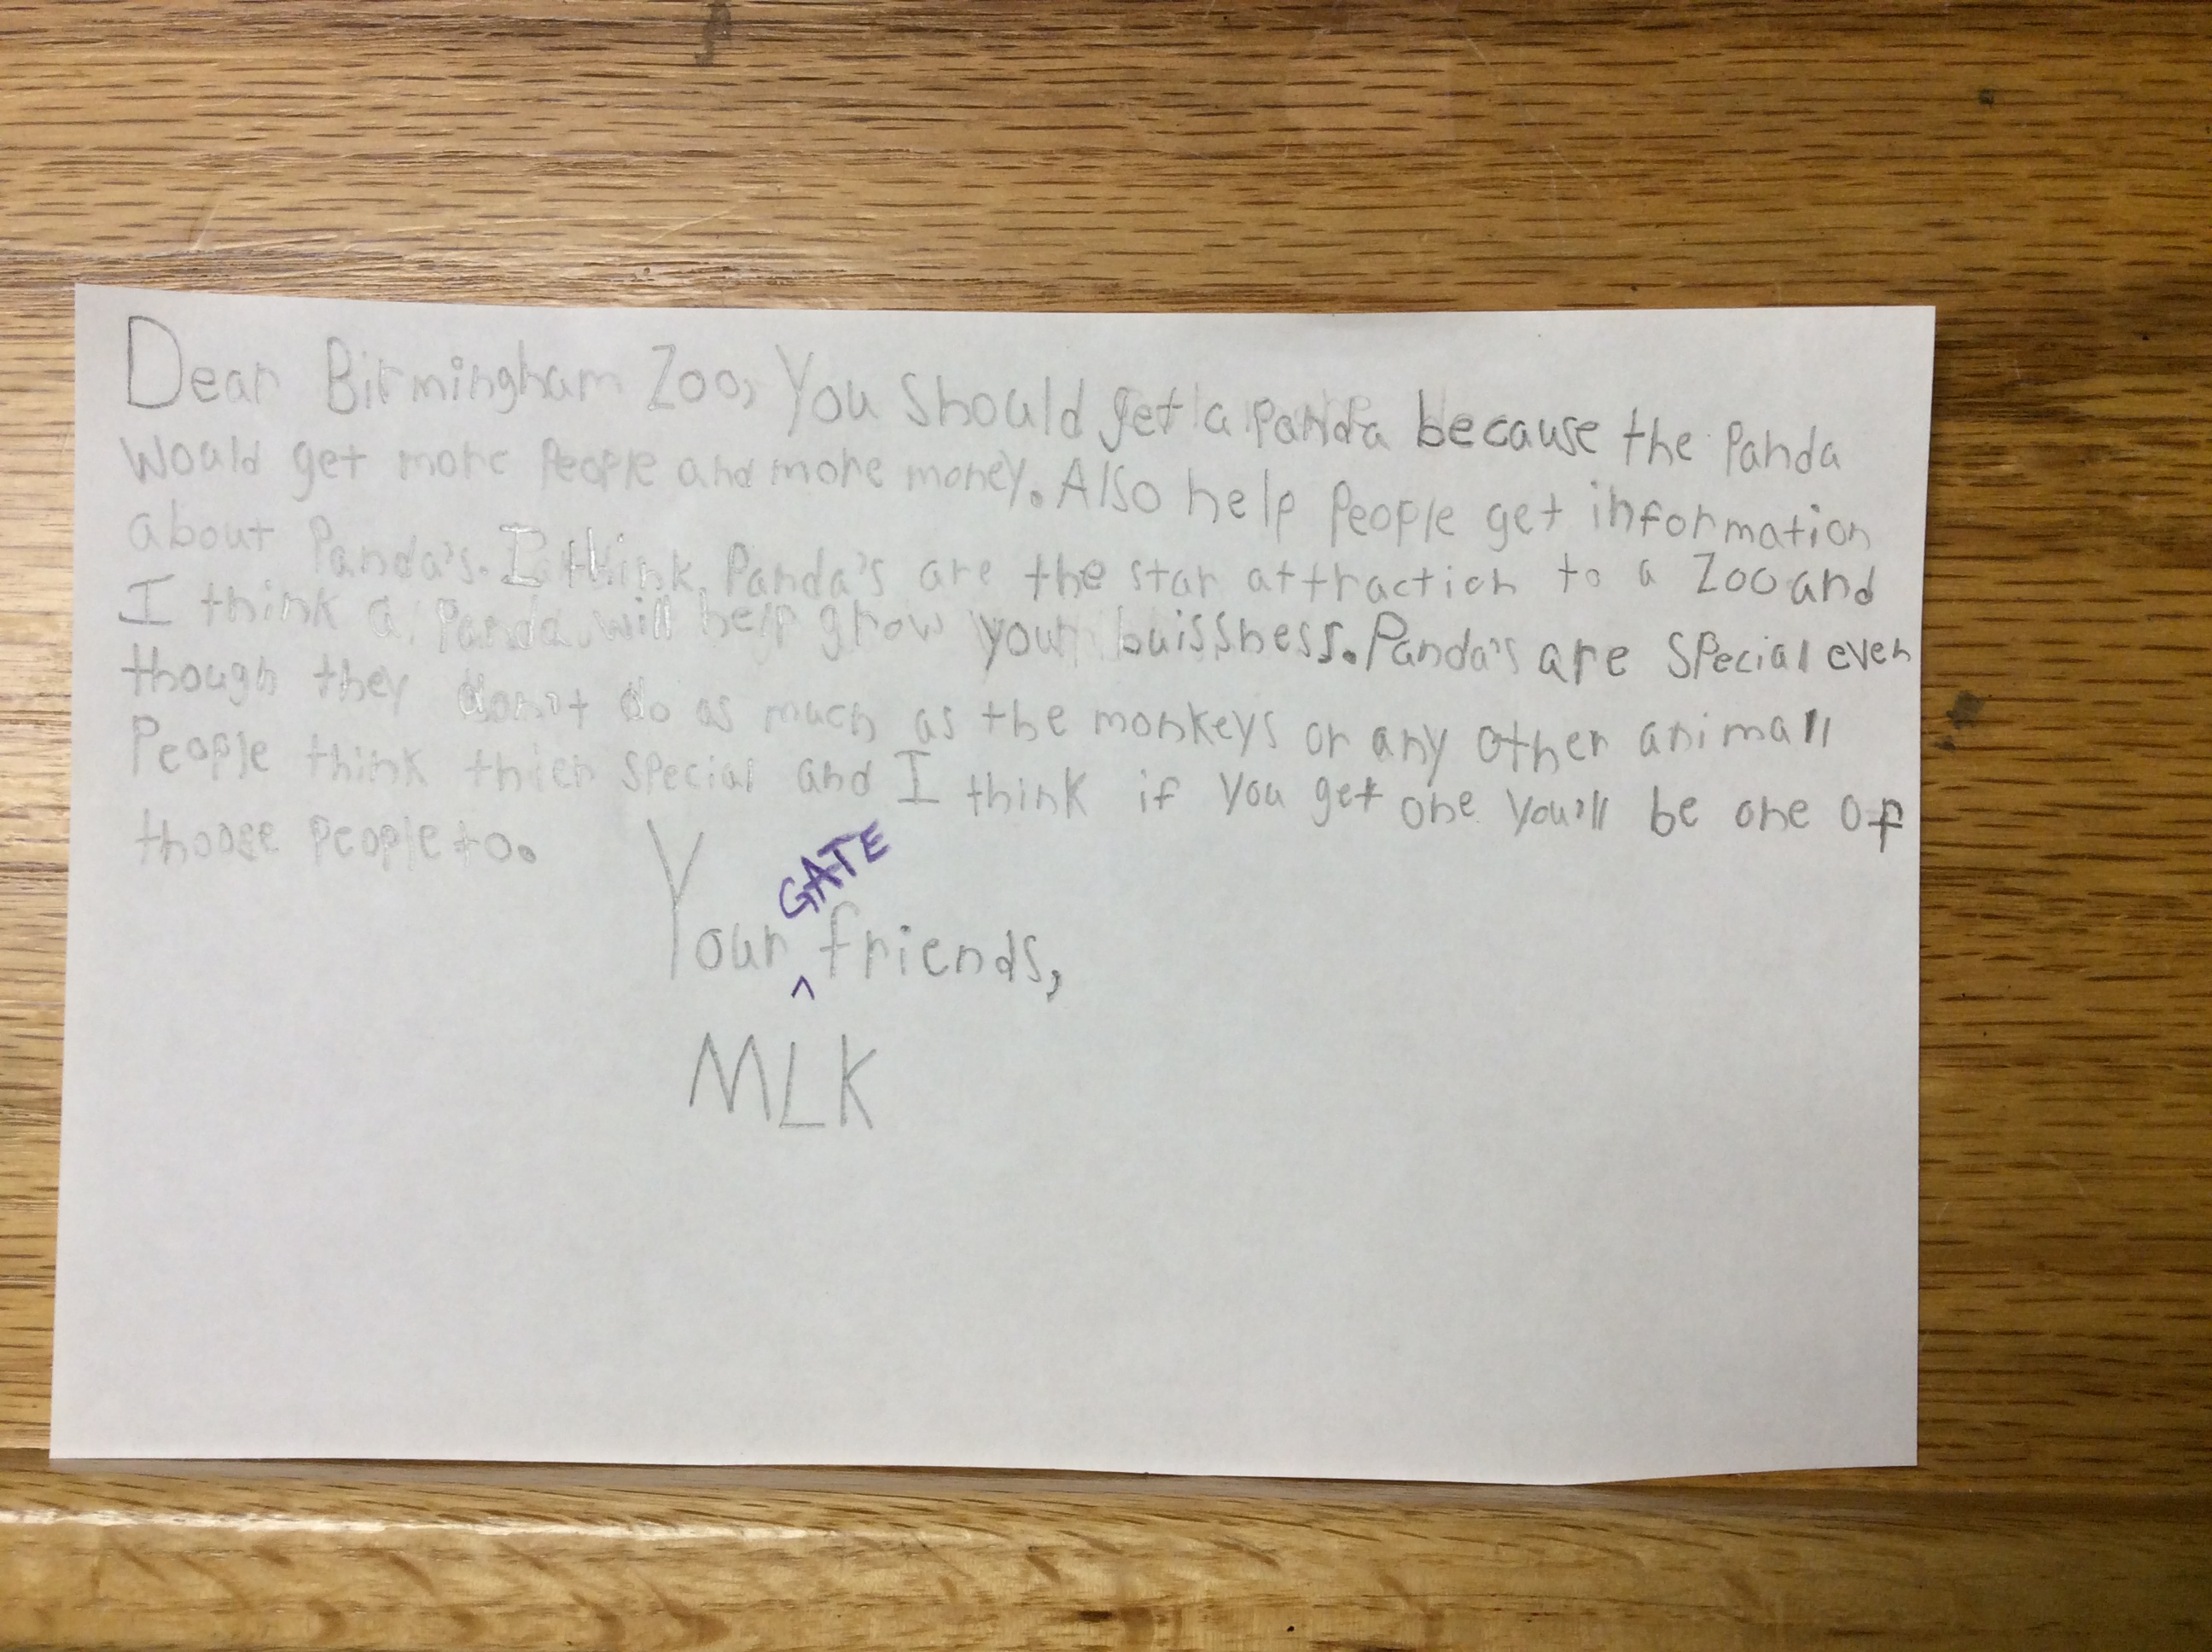 Dear Birmingham Zoo, You should get a panda because the Panda
would get more People and more money. Also help People get information
about Panda's. I think Panda's are the star attraction to a Zoo and
I think a Panda will help grow your buissness. Panda's are special even
though they don't do as much as the monkeys or any other animall
People think thier special and I think if you get one you'll be one of
thoose People to.
Your GATE friends,
MLK